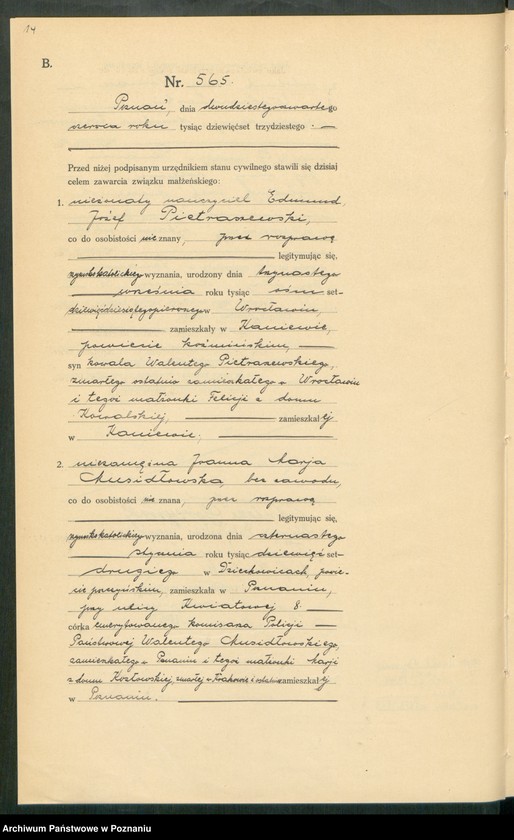 14
B.
Nr. 565.
Poznań, dnia dwudziestegoczwartego
czerwca roku tysiąc dziewięćset trzydziestego
Przed niżej podpisanym urzędnikiem stanu cywilnego stawili się dzisiaj
celem zawarcia związku małżeńskiego:
1. nieżonaty nauczyciel Edmund
Józef Pietraszewski,
co do osobistości nie znany, przez rozprawę
legitymując się,
rzymskokatolickiego wyznania, urodzony dnia trzynastego
września roku tysiąc ośm set-
dziewięćdziesiątegopierwszego w Wrocławiu,
zamieszkały w Kaniewie,
powiecie koźmińskim,
syn kowala Walentego Pietraszewskiego,
zmarłego ostatnio zamieszkałego w Wrocławiu
i tegoż małżonki Felicji z domu
Kowalskiej, zamieszkałej
w Kaniewie;
2. niezamężna Joanna Marja
Musidłowska, bez zawodu,
co do osobistości nie znana, przez rozprawę
legitymując się,
rzymskokatolickiego wyznania, urodzona dnia czternastego
stycznia roku tysiąc dziewięć set-
drugiego w powie-
cie zamieszkała w Poznaniu,
przy ulicy Kwiatowej 8
córka emerytowanego komisarza Policji
Państwowej Walentego Musidłowskiego,
zamieszkałego w Poznaniu i tegoż małżonki Marji
z domu Kozłowskiej, zmarłej w Krakowie i ostatnio zamieszkałej
w Poznaniu.
Archiwum Państwowe w Poznaniu